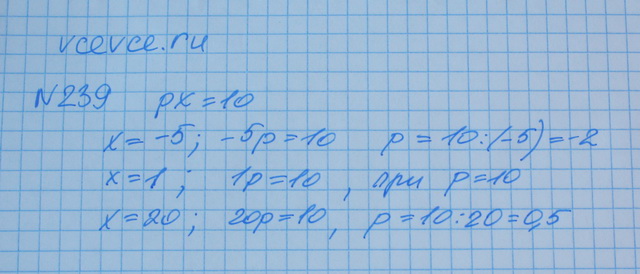 vcevce.ru
N239 px=10
x=-5; -5p=10 p=10:(-5)=-2
x=1; 1p=10, при p=10
x=20; 20p=10, p=10:20=0,5